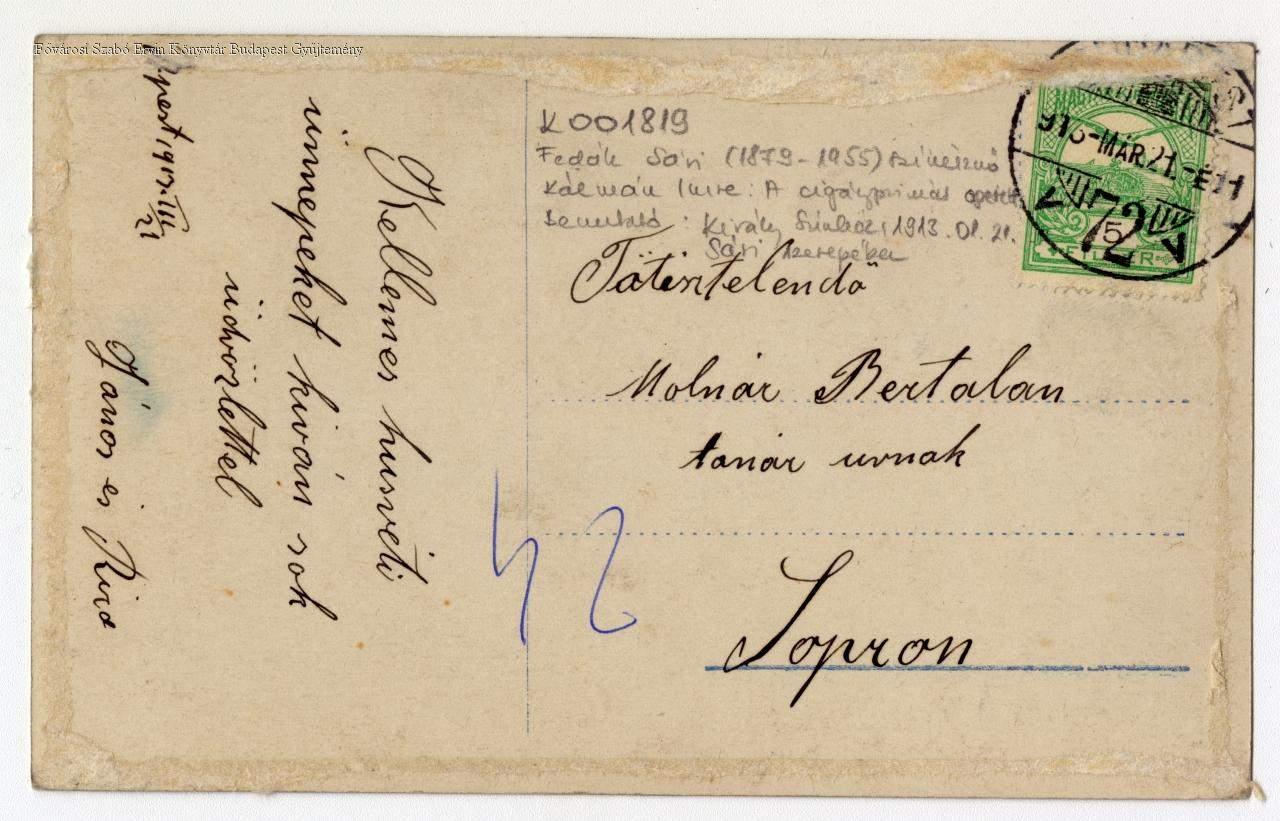 Fővárosi Szabó Ervin Könyvtár Budapest Gyűjtemény
K001819
Fedák Sári (1879-1955) színésznő
Kálmán Imre: A cigányprímás operett
bemutató: Király Színház, 1913. 01. 21.
Sári szerepében
MÁR.21.
72
5
FILLÉR
Bpest, III
21
Kellemes husvéti
ünnepeket kíván sok
üdvözlettel
János és
Főtisztelendő
Molnár Bertalan
tanár urnak
Sopron
42